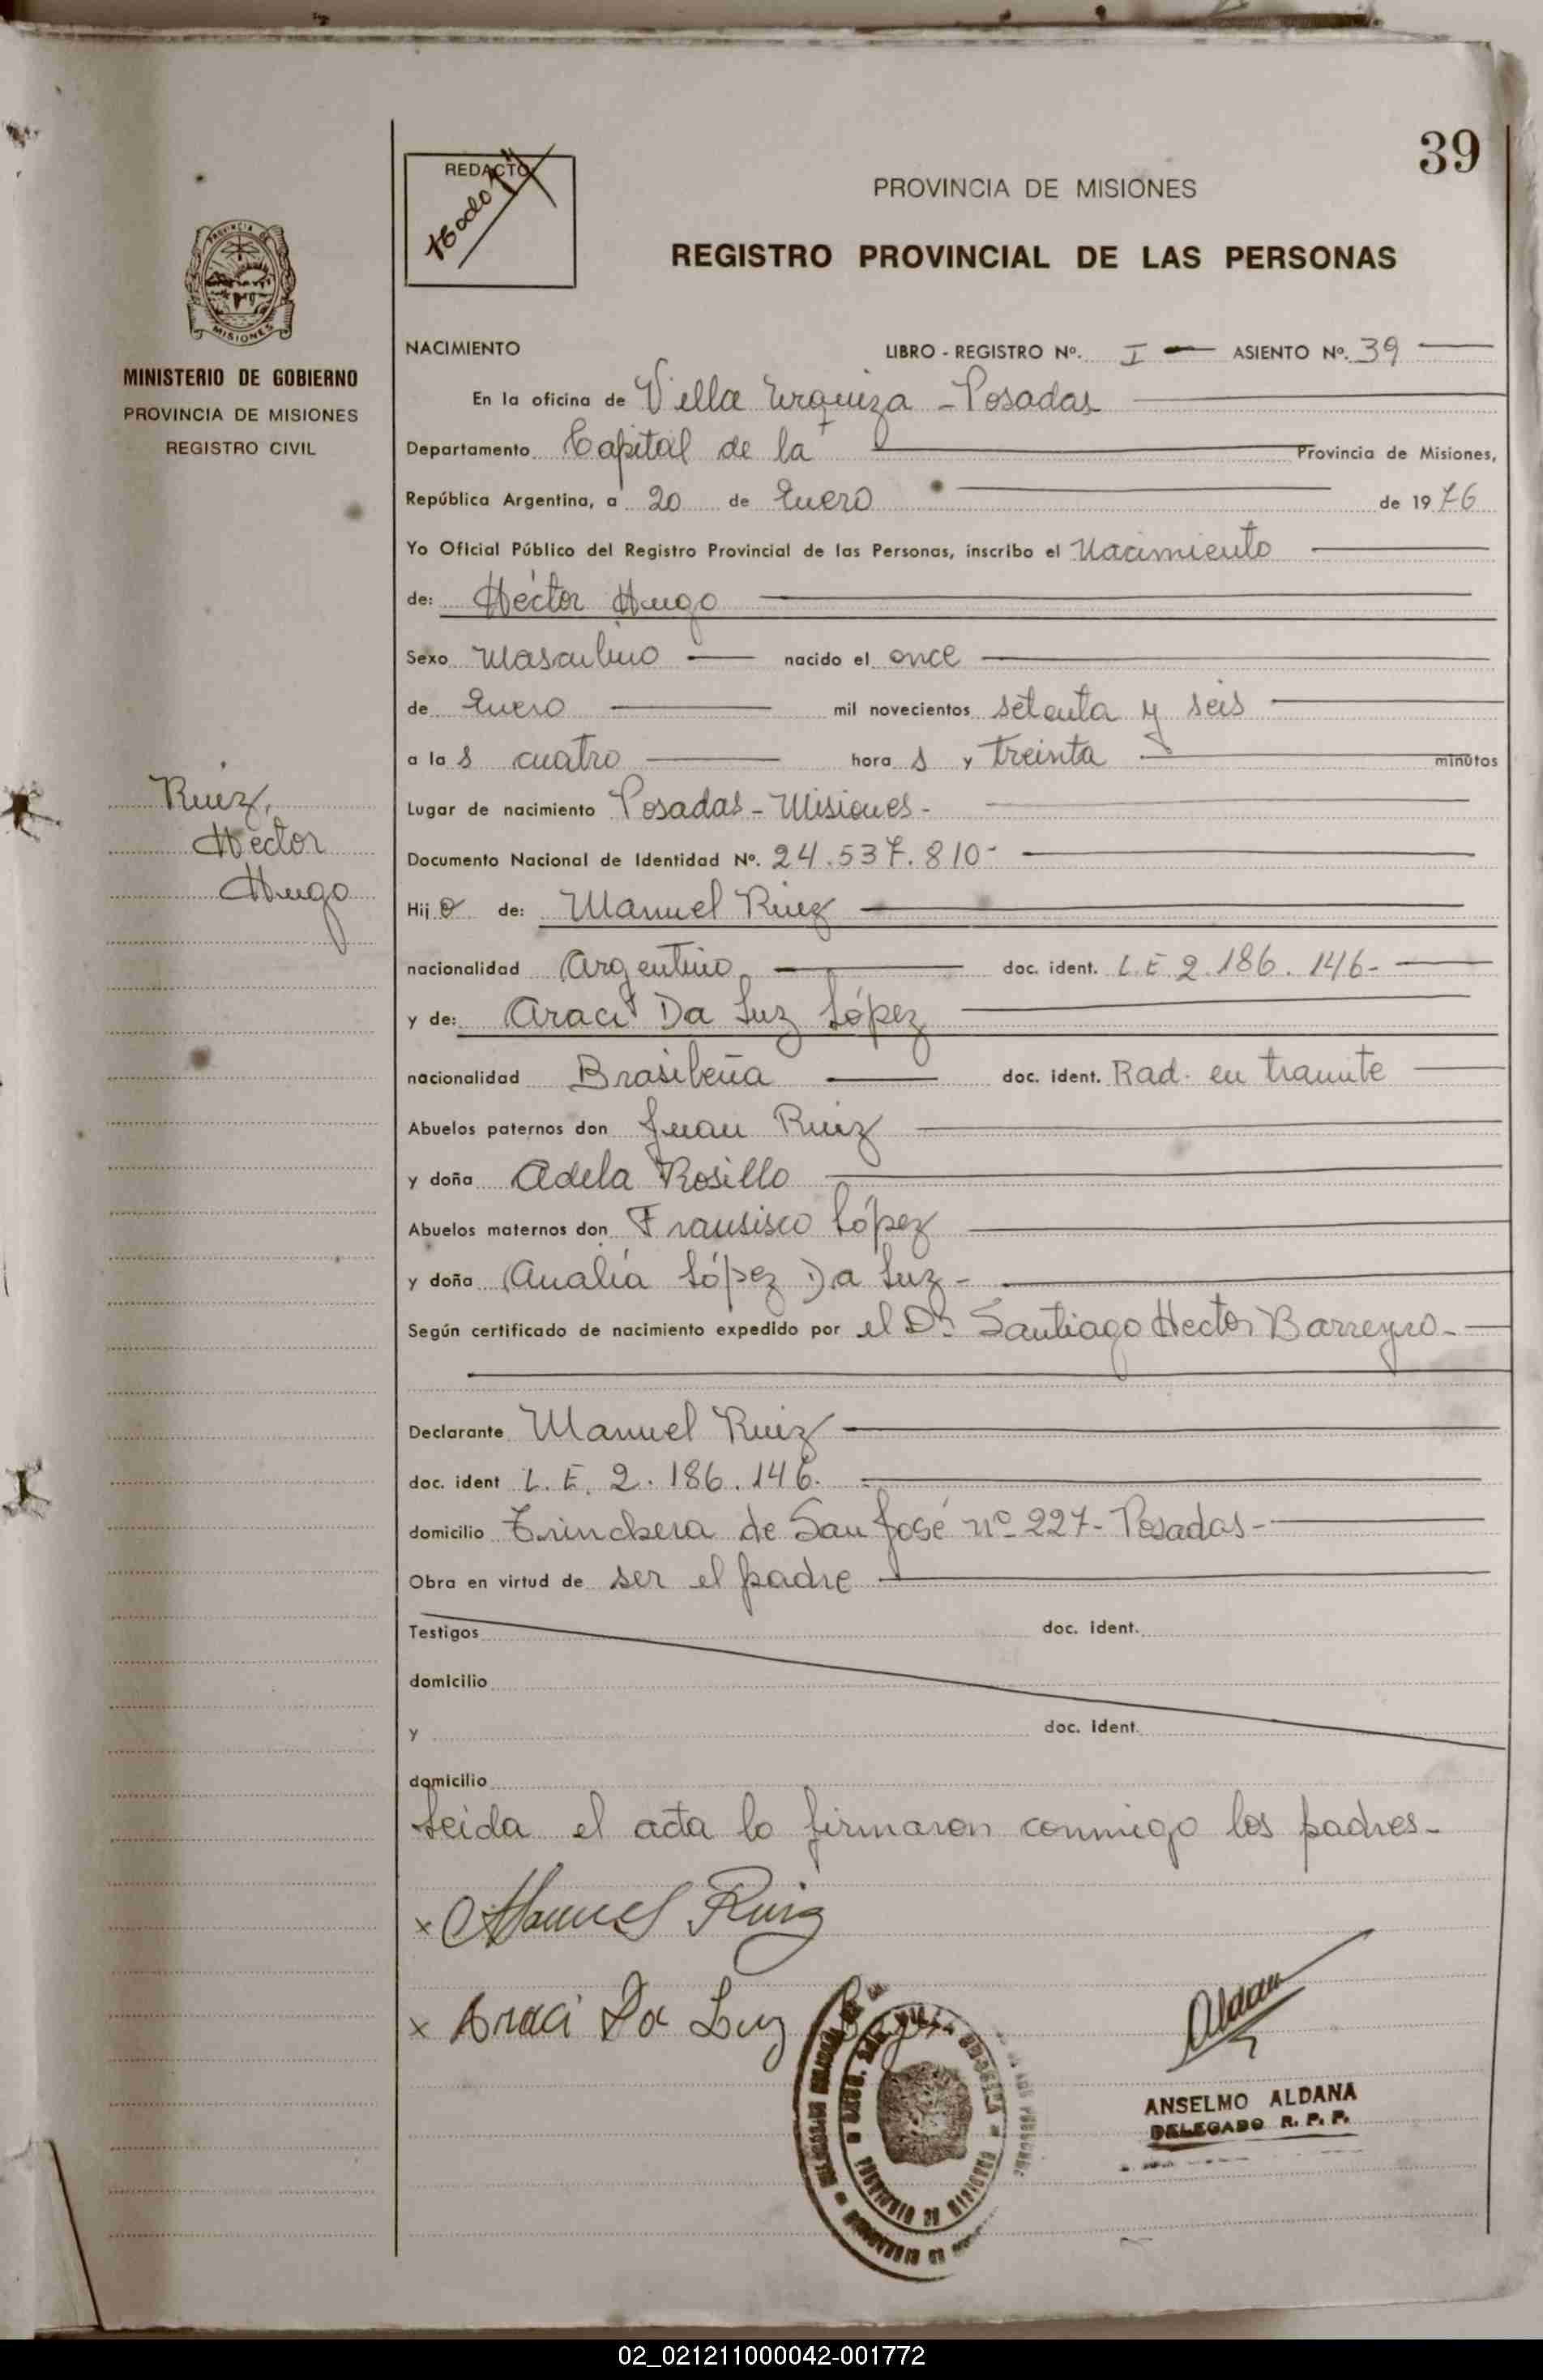 39
REDACTO
PROVINCIA DE MISIONES
REGISTRO PROVINCIAL DE LAS PERSONAS
PROVINCIA DE
MISIONES
MINISTERIO DE GOBIERNO
PROVINCIA DE MISIONES
REGISTRO CIVIL
Ruiz,
Héctor
Hugo
NACIMIENTO LIBRO - REGISTRO Nº. I — ASIENTO Nº. 39
En la oficina de Villa Urquiza - Posadas
Departamento Capital de la Provincia de Misiones,
República Argentina, a 20 de Enero de 1976
Yo Oficial Público del Registro Provincial de las Personas, inscribo el Nacimiento
de: Héctor Hugo
Sexo Masculino nacido el once
de Enero mil novecientos setenta y seis
a las cuatro horas y treinta minutos
Lugar de nacimiento Posadas - Misiones -
Documento Nacional de Identidad Nº. 24.537.810 -
Hijo de: Manuel Ruiz
nacionalidad Argentino doc. ident. L.E 2.186.146-
y de: Araci Da Luz López
nacionalidad Brasileña doc. ident. Rad. en tramite
Abuelos paternos don Juan Ruiz
y doña Adela Rosillo
Abuelos maternos don Fransisco López
y doña Analía López Da Luz -
Según certificado de nacimiento expedido por el Dr. Santiago Hector Barreyro -
Declarante Manuel Ruiz
doc. ident L. E. 2.186.146.
domicilio Trinchera de San José nº 227 - Posadas -
Obra en virtud de ser el padre
Testigos doc. ident.
domicilio
y doc. ident.
domicilio
Leida el acta lo firmaron conmigo los padres -
x Manuel Ruiz
x Araci Da Luz
Aldana
ANSELMO ALDANA
DELEGADO R. P. P.
PROVINCIA DE MISIONES
02_021211000042-001772